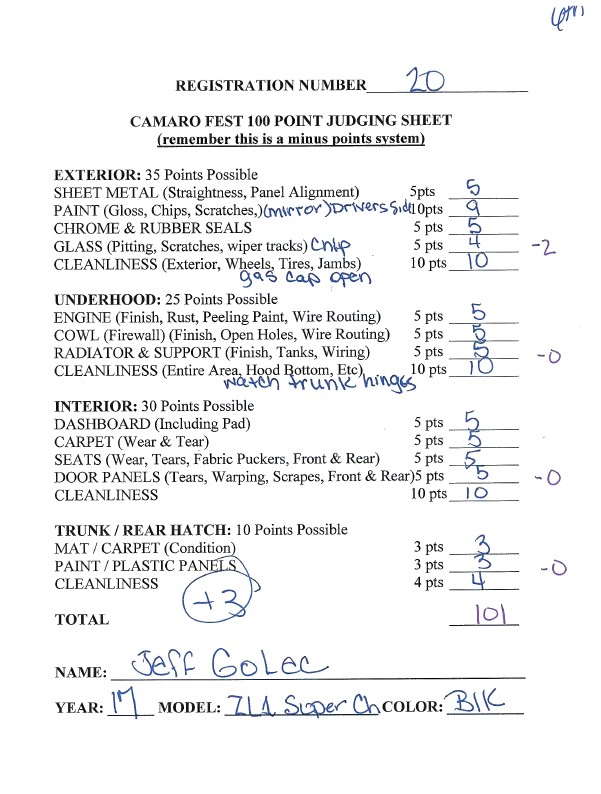 REGISTRATION NUMBER 20
CAMARO FEST 100 POINT JUDGING SHEET
(remember this is a minus points system)
EXTERIOR: 35 Points Possible
SHEET METAL (Straightness, Panel Alignment) 5pts 5
PAINT (Gloss, Chips, Scratches,) (mirror) Drivers side 10pts 9
CHROME & RUBBER SEALS 5 pts 5
GLASS (Pitting, Scratches, wiper tracks) Chip 5 pts 4 -2
CLEANLINESS (Exterior, Wheels, Tires, Jambs) 10 pts 10
gas cap open
UNDERHOOD: 25 Points Possible
ENGINE (Finish, Rust, Peeling Paint, Wire Routing) 5 pts 5
COWL (Firewall) (Finish, Open Holes, Wire Routing) 5 pts 5
RADIATOR & SUPPORT (Finish, Tanks, Wiring) 5 pts 5 -0
CLEANLINESS (Entire Area, Hood Bottom, Etc) 10 pts 10
watch trunk hinges
INTERIOR: 30 Points Possible
DASHBOARD (Including Pad) 5 pts 5
CARPET (Wear & Tear) 5 pts 5
SEATS (Wear, Tears, Fabric Puckers, Front & Rear) 5 pts 5
DOOR PANELS (Tears, Warping, Scrapes, Front & Rear)5 pts 5 -0
CLEANLINESS 10 pts 10
TRUNK / REAR HATCH: 10 Points Possible
MAT / CARPET (Condition) 3 pts 3
PAINT / PLASTIC PANELS 3 pts 3 -0
CLEANLINESS 4 pts 4
+3
TOTAL 101
NAME: Jeff Golec
YEAR: 17 MODEL: ZL1 Super Ch COLOR: Blk